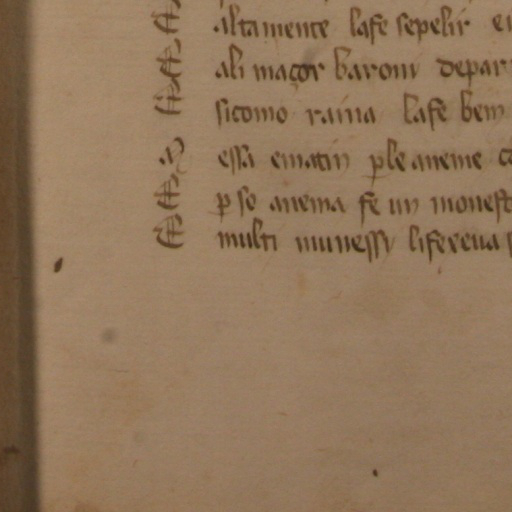 E altamente lafe sepelir en
E ali maçor baroni depar
E sicomo raina lafe ben
M essa ematin ꝑle aneme co
E ꝑ so anema fe un monest
E multi munessi lifexeua